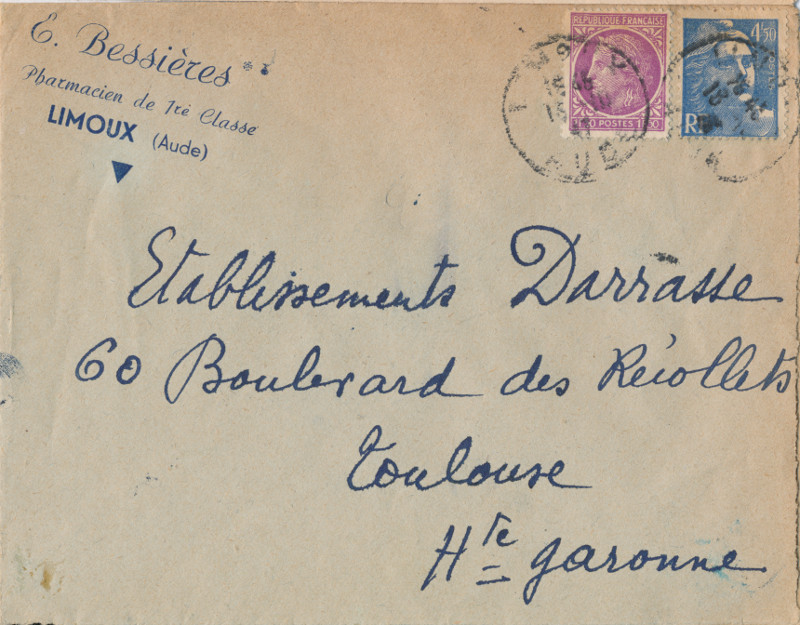 E. Bessières
Pharmacien de 1re Classe
LIMOUX (Aude)
REPUBLIQUE FRANÇAISE
POSTES
4f50
RF
Etablissements Darrasse
60 Boulevard des Récollets
Toulouse
Hte Garonne